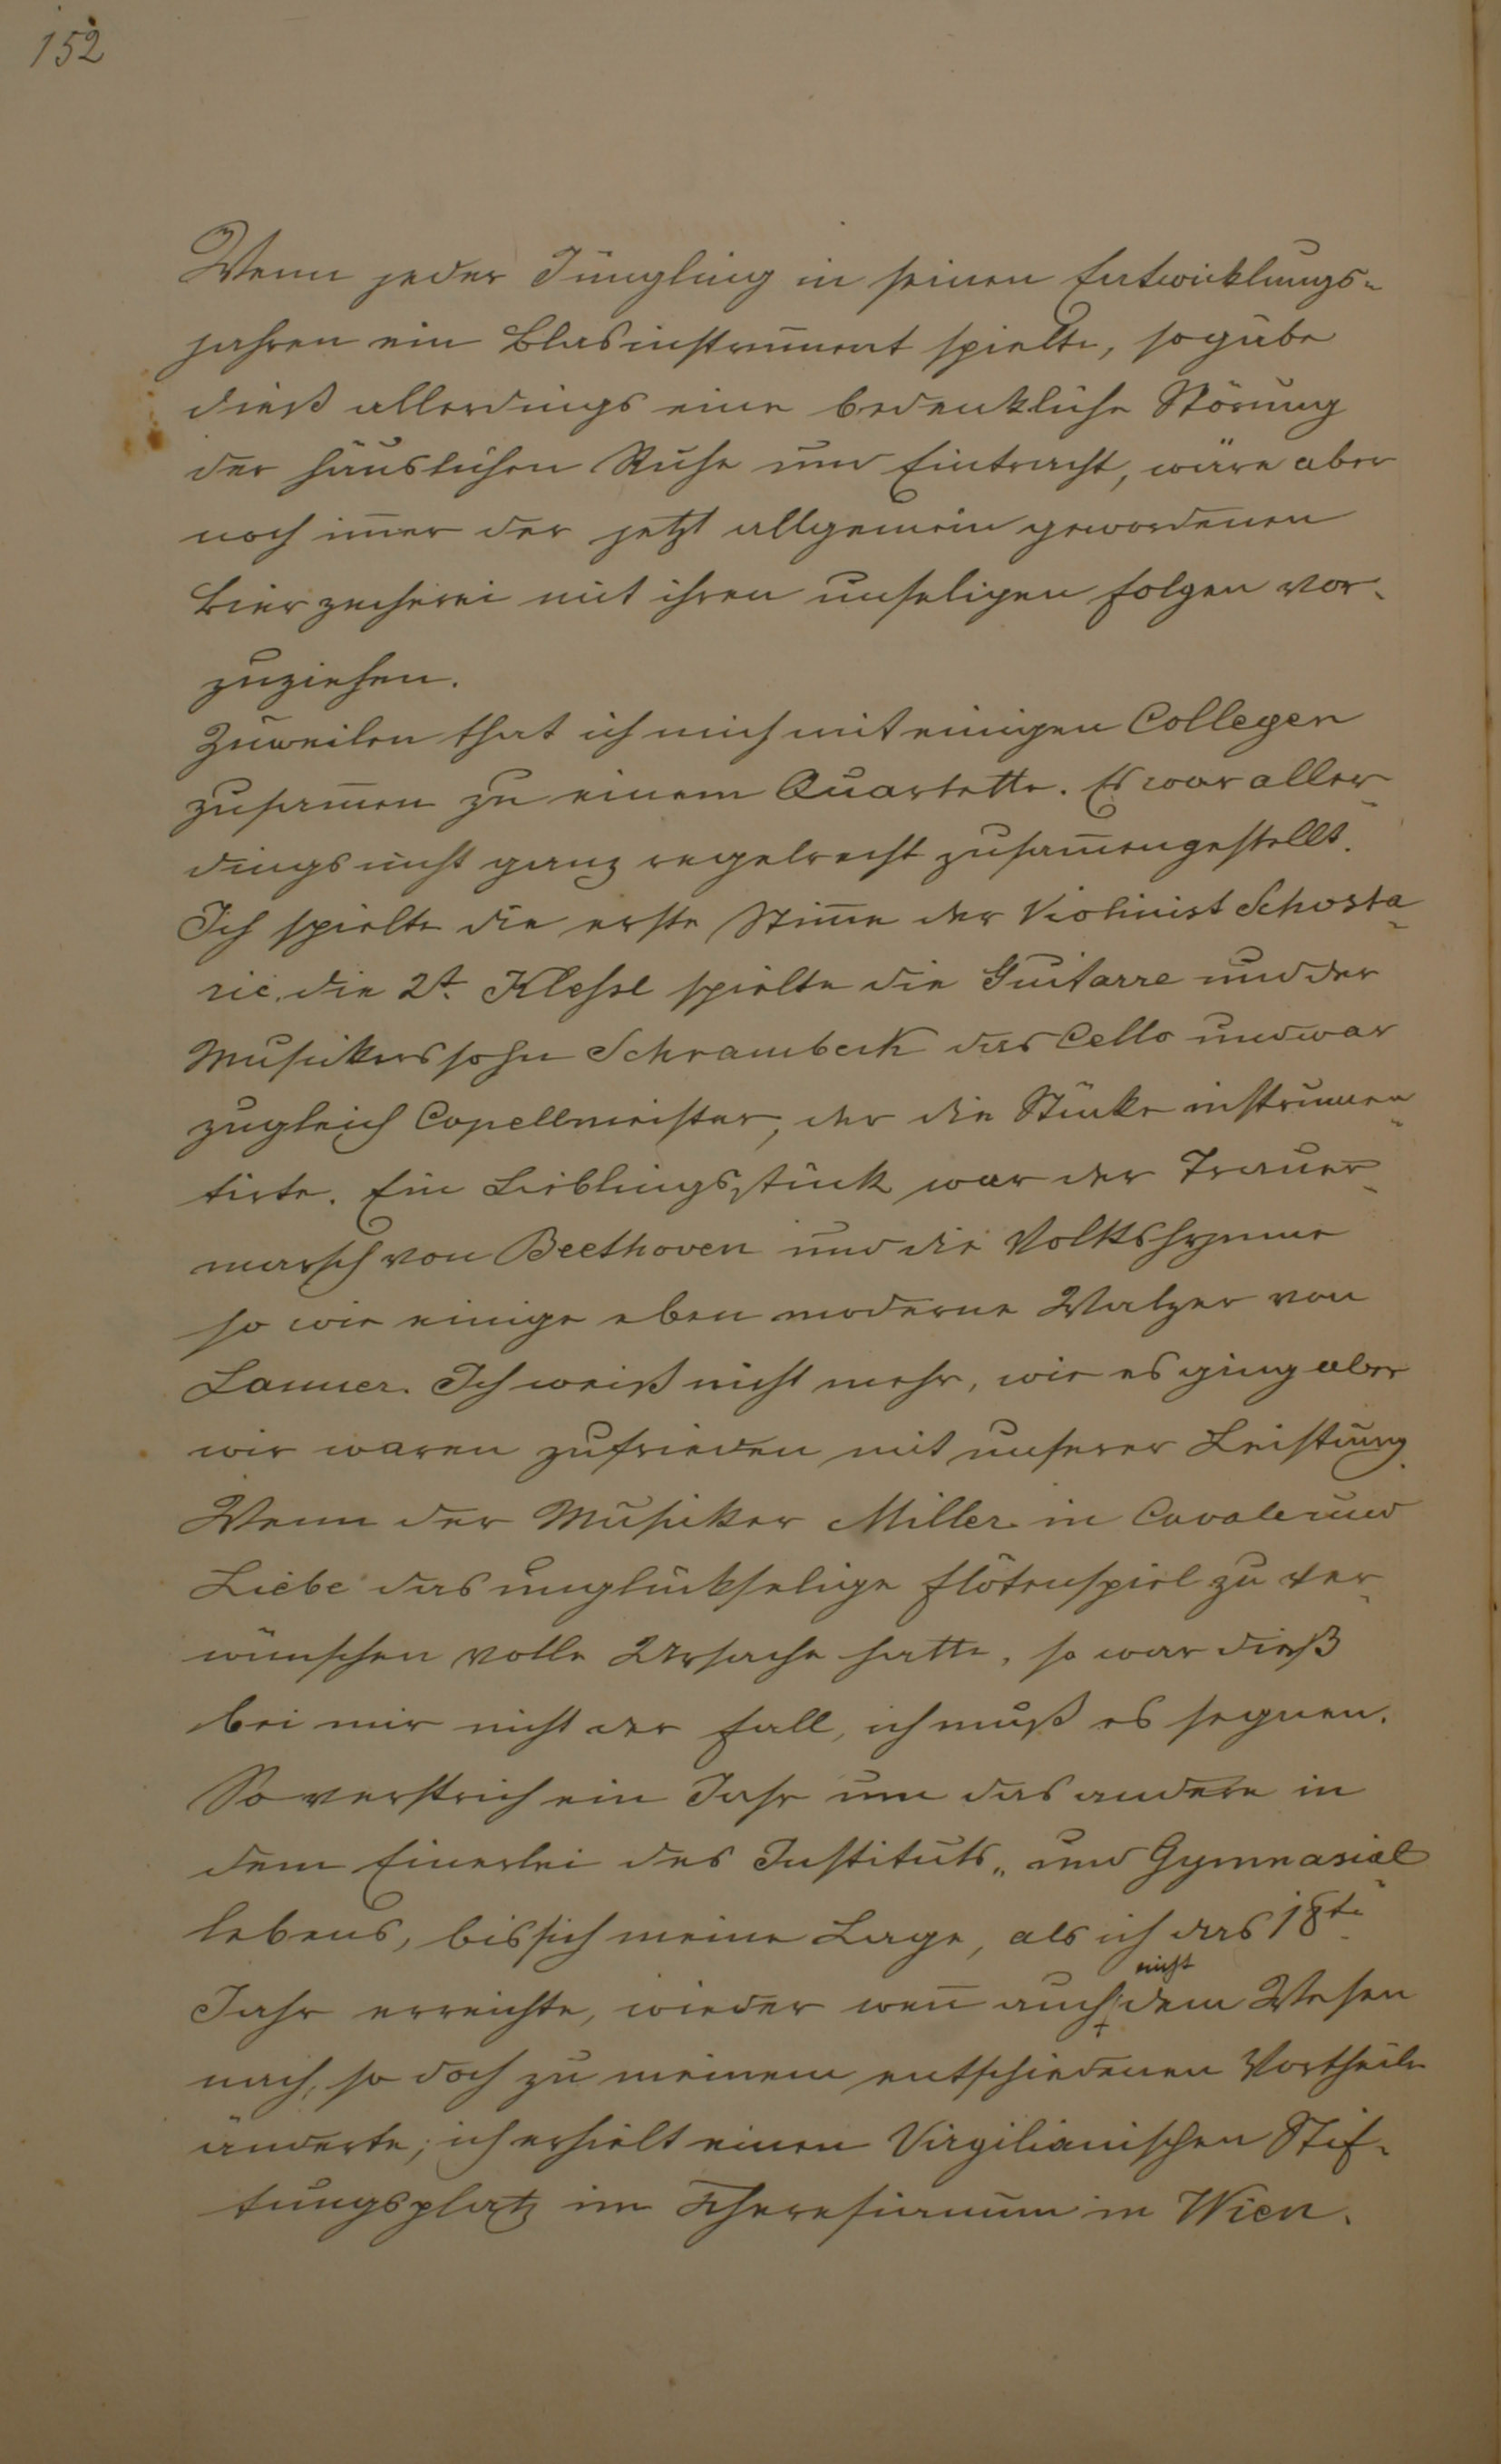 152
Wenn jeder Jüngling in seinen Entwicklungs-
jahren ein Blasinstrument spielte, so gäbe
dieß allerdings eine bedenkliche Störung
der häuslichen Ruhe und Eintracht, wäre aber
noch im̄er der jetzt allgemein gewordenen
Bierzecherei mit ihren unseligen Folgen vor-
zuziehen.
Zuweilen that ich mich mit einigen Collegen
zusam̄en zu einem Quartette. Es war aller-
dings nicht ganz regelrecht zusam̄engestellt.
Ich spielte die erste Stim̄e der Violinist Schosta-
ric die 2t. Klessl spielte die Guitarre und der
Musikerssohn Schrambeck das Cello und war
zugleich Capellmeister, der die Stücke instrumen-
tirte. Ein Lieblingsstück war der Trauer-
marsch von Beethoven und die Volkshymne
so wie einige eben moderne Walzer von
Lanner. Ich weiß nicht mehr, wie es ging aber
wir waren zufrieden mit unserer Leistung.
Wenn der Musiker Miller in Cavale und
Liebe das unglückselige Flötenspiel zu ver-
wünschen volle Ursache hatte, so war dieß
bei mir nicht der Fall, ich muß es segnen.
So verstrich ein Jahr um das andere in
dem Einerlei des Instituts- und Gymnasial-
lebens, bis sich meine Lage, als ich das 18te
Jahr erreichte, wieder wen̄ auch nicht dem Wesen
nach, so doch zu meinem entschiedenen Vortheile
änderte; ich erhielt einen Virgilianischen Stif-
tungsplatz im Theresianum in Wien.